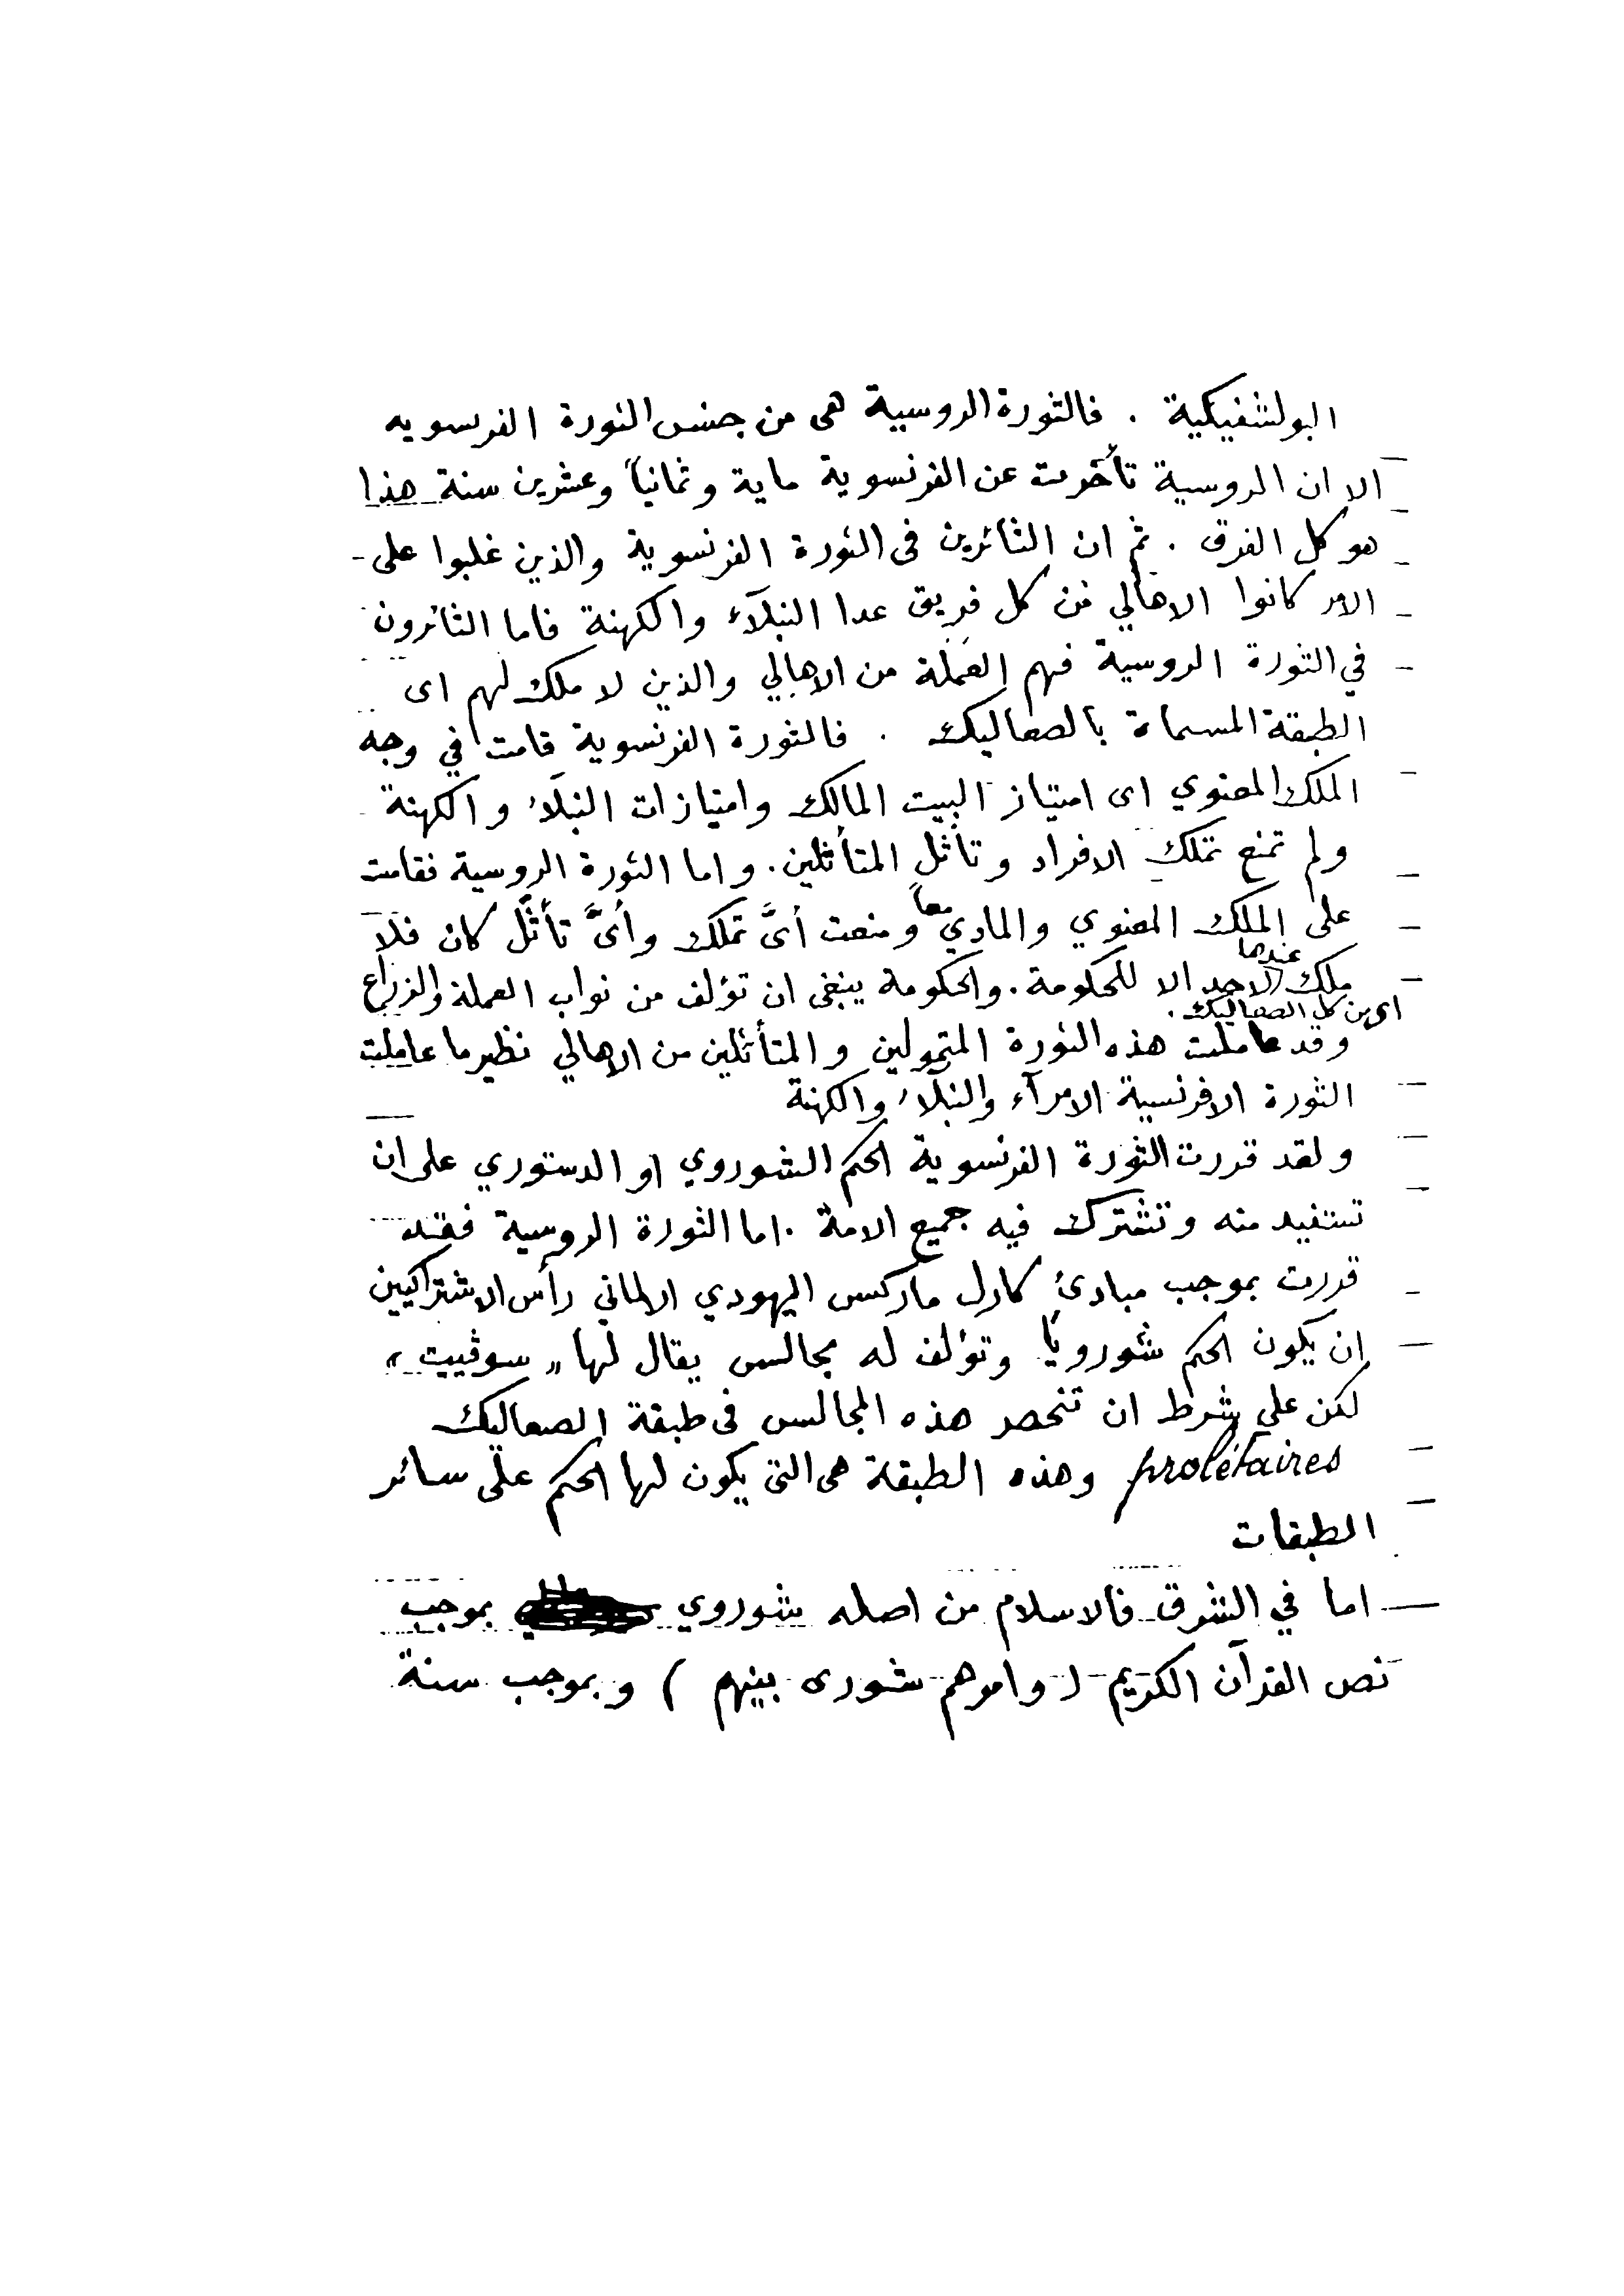 البولشفيكية . فالثورة الروسية هى من جنس الثورة الفرنسويه
الا ان الروسية تأخرت عن الفرنسوية ماية وثمانياً وعشرين سنة هذا
هو كل الفرق . ثم ان الثائرين فى الثورة الفرنسوية والذين غلبوا على
الامر كانوا الاهالي من كل فريق عدا النبلآء والكهنة فاما الثائرون
في الثورة الروسية فهم العَمَلَة من الاهالي والذين لا ملك لهم اى
الطبقة المسماة بالصعاليك . فالثورة الفرنسوية قامت في وجه
الملك المعنوي اى امتياز البيت المالك وامتيازات النبلآء والكهنة
ولم تمنع تملك الافراد وتأثل المتأثلين . واما الثورة الروسية فقامت
على الملك المعنوي والمادي معاً ومنعت أىَّ تملك وأىَّ تأثّل كان فلا
ملك عندها لاحد الا للحكومة . والحكومة ينبغى ان تؤلف من نواب العملة والزراع
اى من كل الصعاليك .
وقد عاملت هذه الثورة المتمولين والمتأثلين من الاهالي نظير ما عاملت
الثورة الافرنسية الامرآء والنبلآء والكهنة
ولقد قررت الثورة الفرنسوية الحكم الشوروي او الدستوري على ان
تستفيد منه وتشترك فيه جميع الامة . اما الثورة الروسية فقد
قررت بموجب مبادئ كارل ماركس اليهودي الالماني رأس الاشتراكيين
ان يكون الحكم شورويًا وتؤلف له مجالس يقال لها « سوڤييت »
لكن على شرط ان تنحصر هذه المجالس فى طبقة الصعاليك
prolétaires وهذه الطبقة هى التى يكون لها الحكم على سائر
الطبقات
اما في الشرق فالاسلام من اصله شوروي بموجب
نص القرآن الكريم ( وامرهم شورى بينهم ) وبموجب سنة